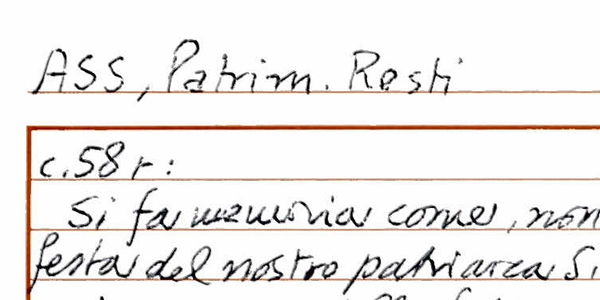 ASS, Patrim. Resti
c. 58 r:
Si fa memoria come, non
festa del nostro patriarca S.